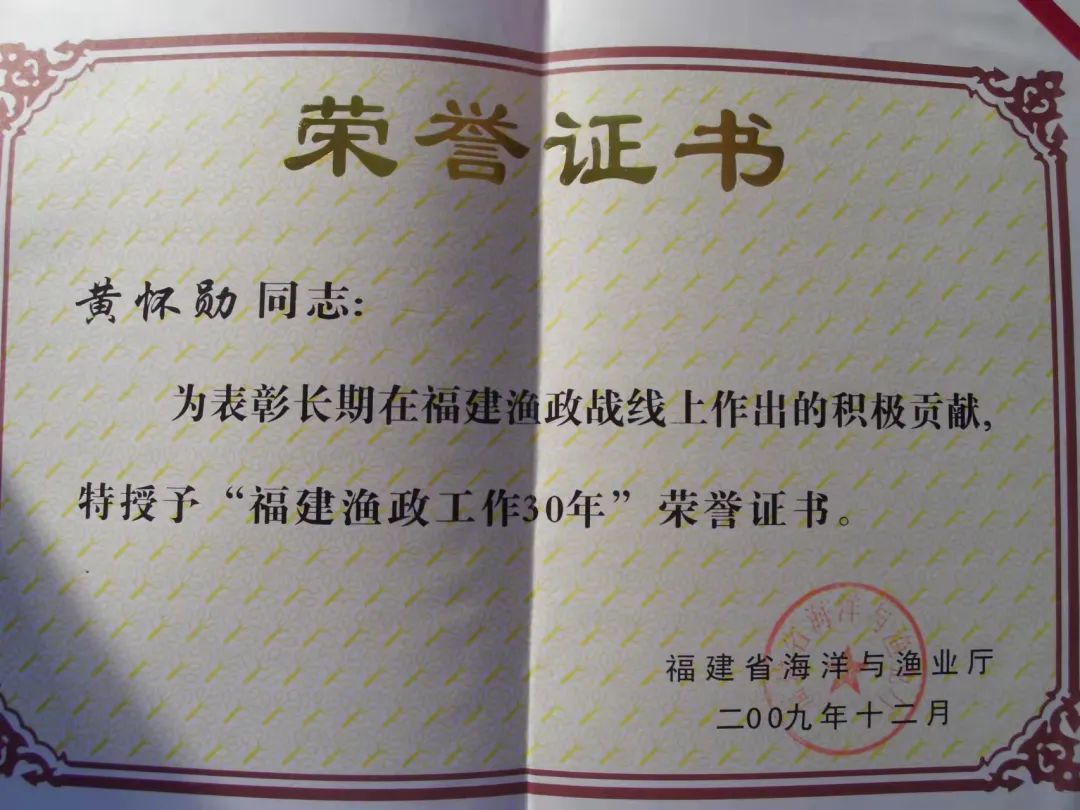 荣誉证书
黄怀勋 同志:
为表彰长期在福建渔政战线上作出的积极贡献,
特授予“福建渔政工作30年”荣誉证书。
福建省海洋与渔业厅
二00九年十二月